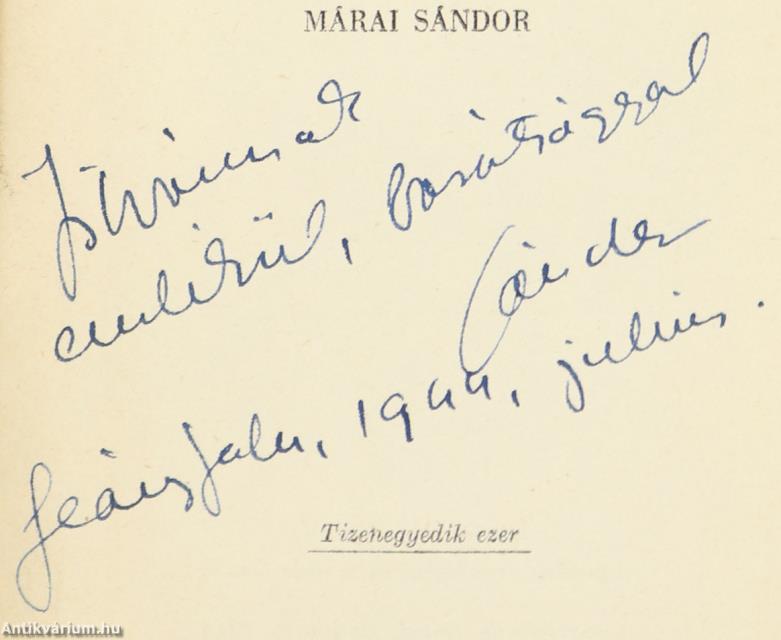 MÁRAI SÁNDOR
Istvánnak
emlékül, barátsággal
Sándor
Leányfalu, 1944. julius.
Tizenegyedik ezer
Antikvárium.hu